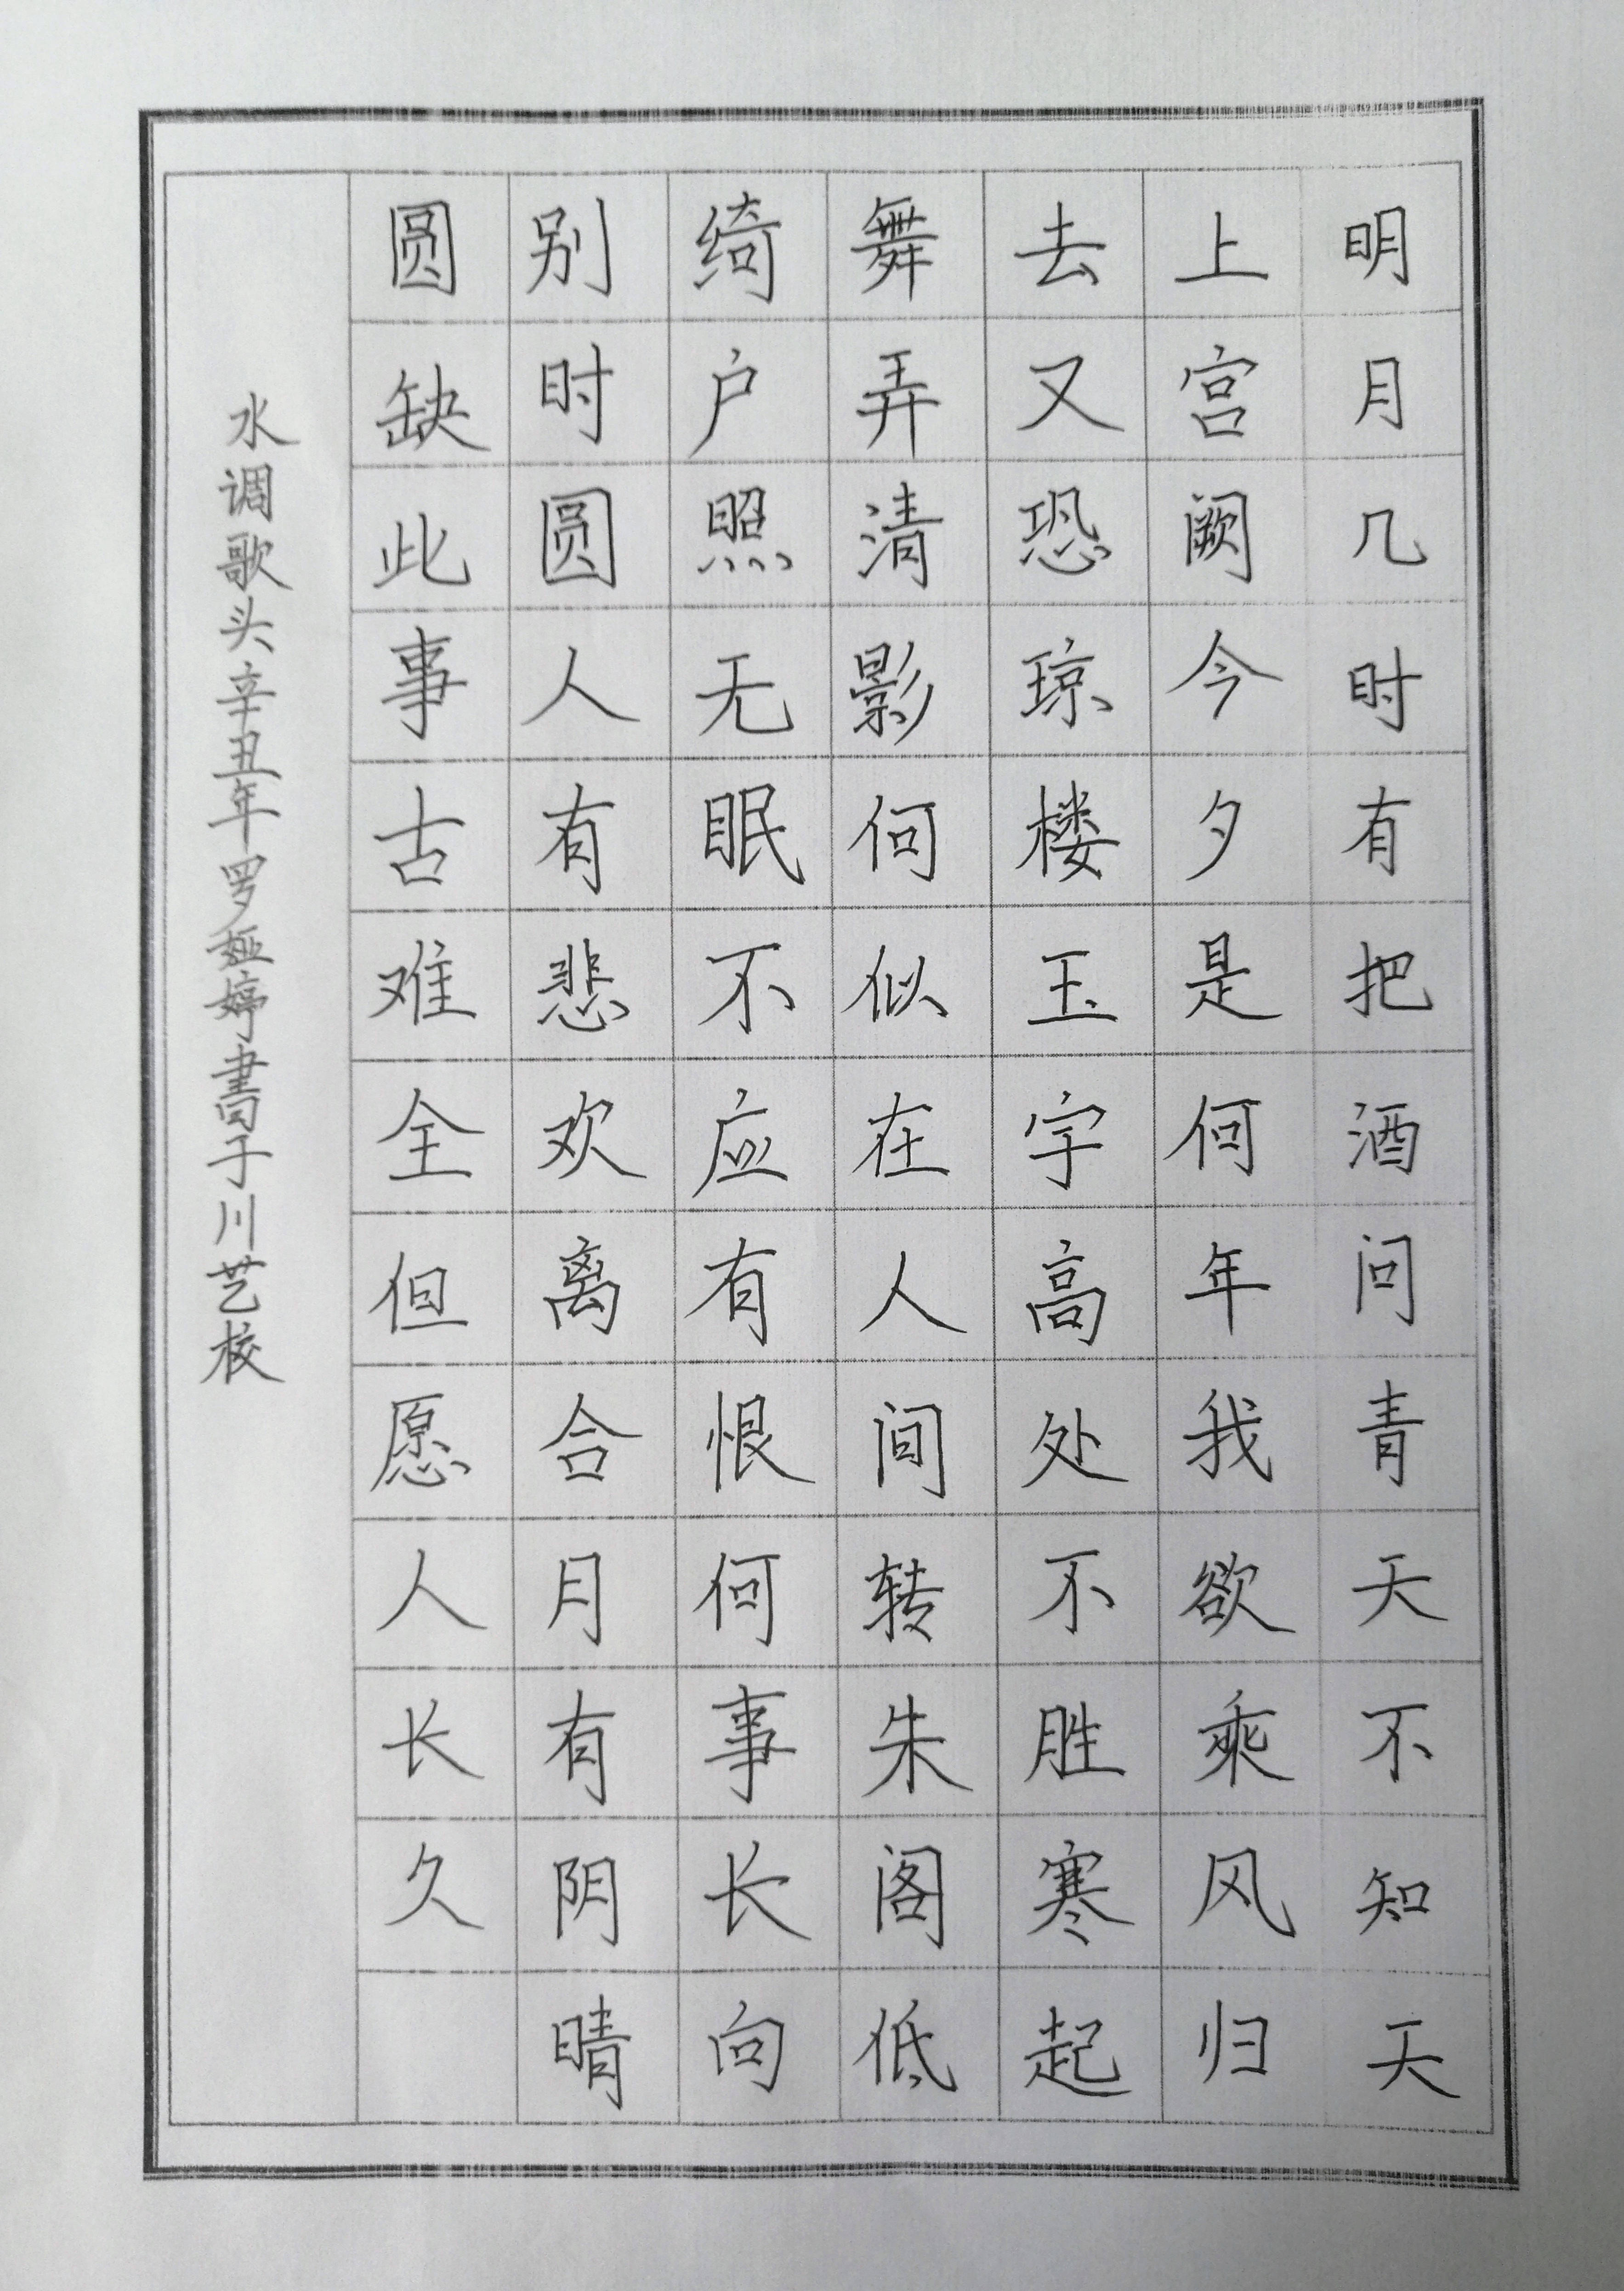 明月几时有把酒问青天不知天
上宫阙今夕是何年我欲乘风归
去又恐琼楼玉宇高处不胜寒起
舞弄清影何似在人间转朱阁低
绮户照无眠不应有恨何事长向
别时圆人有悲欢离合月有阴晴
圆缺此事古难全但愿人长久
水调歌头辛丑年罗娅婷書于川艺校